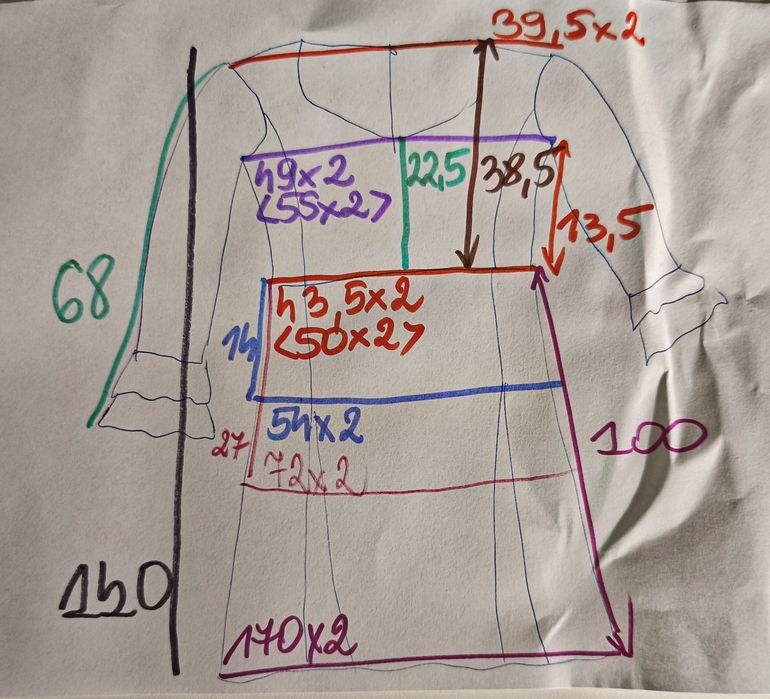 39,5x2
49x2
<55x2>
22,5
38,5
13,5
68
43,5x2
<50x2>
14
54x2
27
72x2
100
140
170x2